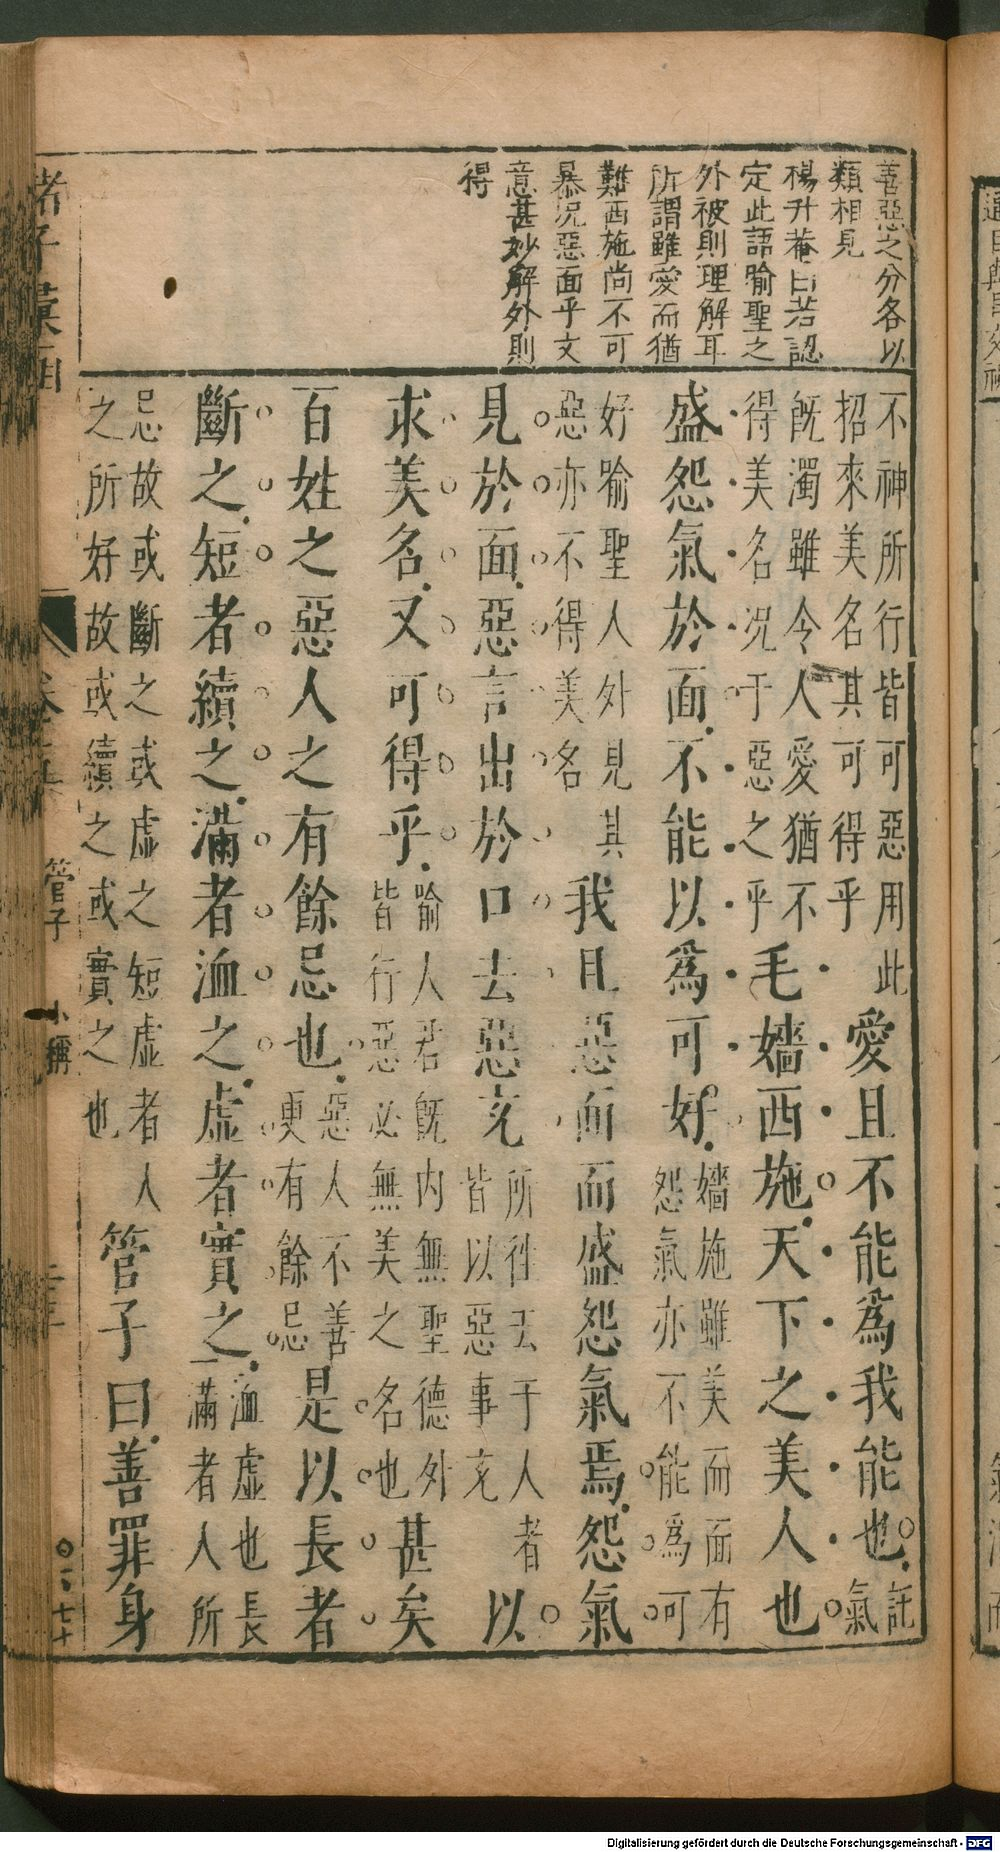 善惡之分各以
類相見
楊升菴曰若認
定此語喻聖之
外被則理解耳
所謂雖愛而猶
難西施尚不可
暴況惡面乎文
意甚妙解外則
得
不神所行皆可惡用此
招來美名其可得乎
愛且不能為我能也
託
氣
旣濁雖令人愛猶不
得美名况于惡之乎
毛嬙西施天下之美人也
盛怨氣於面不能以為可好
嬙施雖美而面有
怨氣亦不能為可
好喻聖人外見其
惡亦不得美名
我且惡面而盛怨氣焉怨氣
見於面惡言出於口去惡充
所徃去于人者
皆以惡事充
以
求美名又可得乎
喻人君旣内無聖德外
皆行惡必無美之名也
甚矣
百姓之惡人之有餘忌也
惡人不善
更有餘忌
是以長者
斷之短者續之滿者洫之虛者實之
洫虛也長
滿者人所
忌故或斷之或虛之短虛者人
之所好故或續之或實之也
管子曰善罪身
諸子彙函
管子 小稱
通
Digitalisierung gefördert durch die Deutsche Forschungsgemeinschaft - DFG